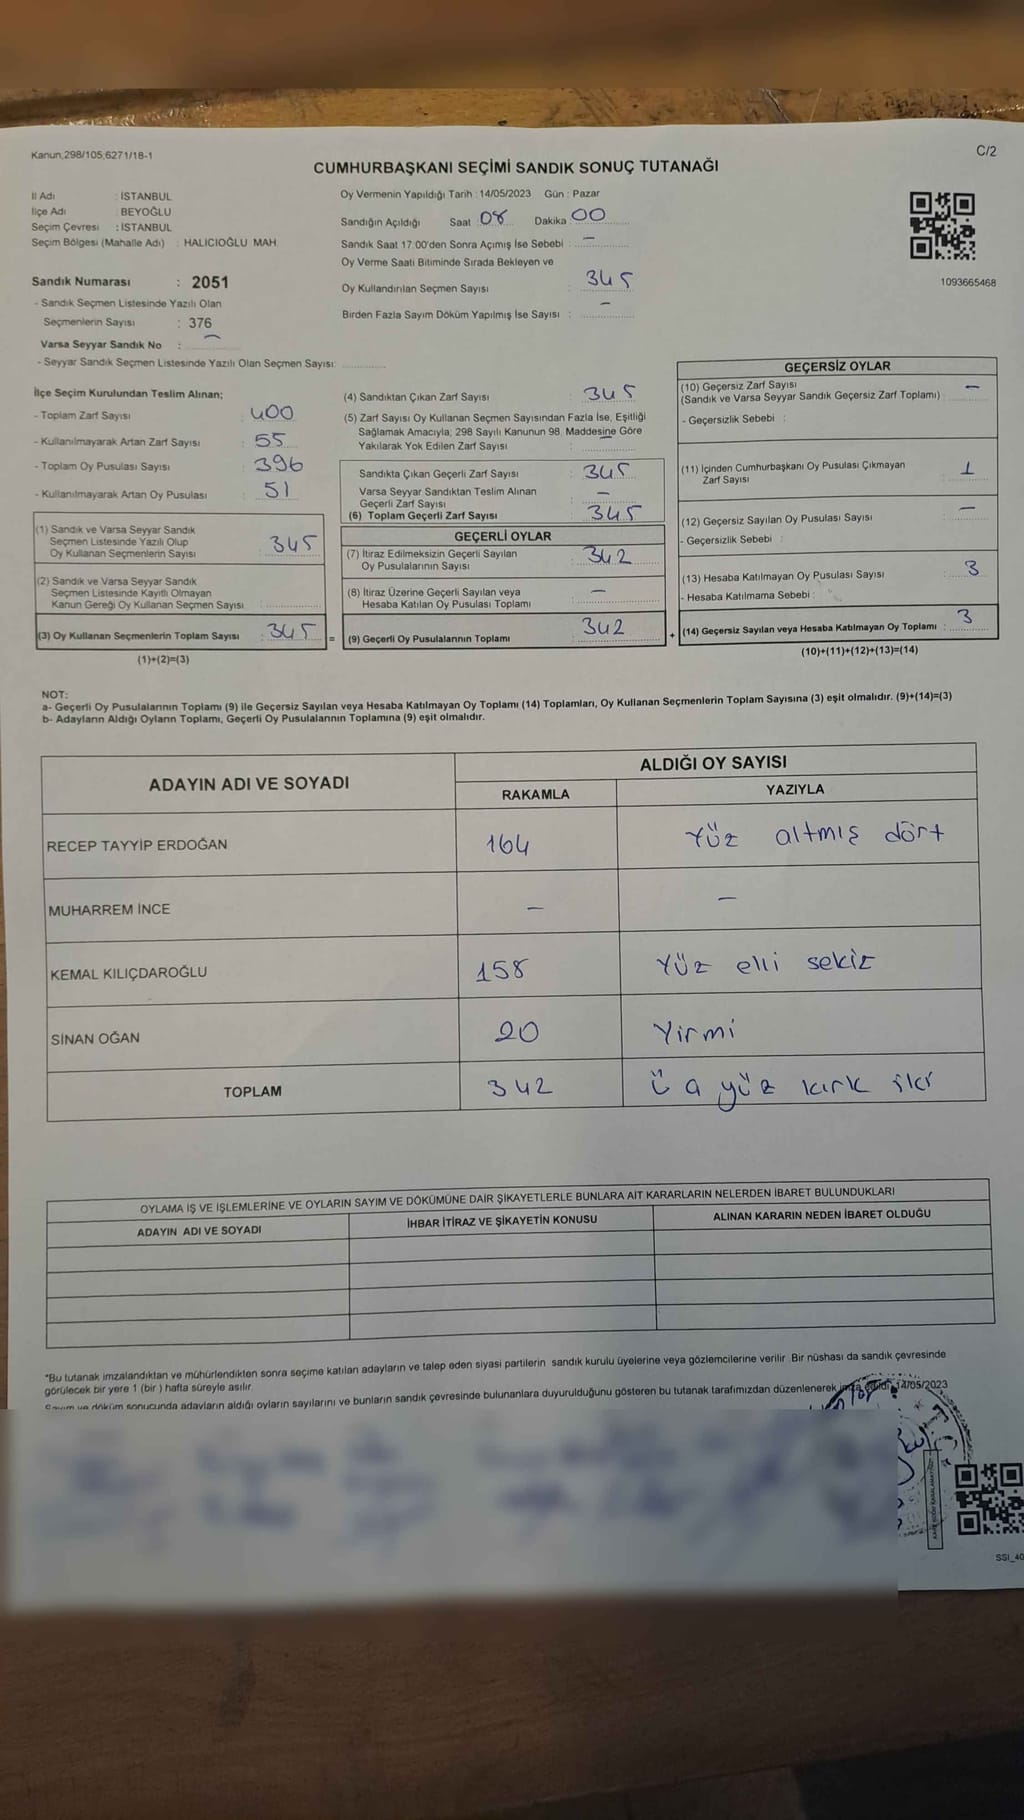 Kanun,298/105,6271/18-1
C/2
CUMHURBAŞKANI SEÇİMİ SANDIK SONUÇ TUTANAĞI
İl Adı : İSTANBUL
İlçe Adı : BEYOĞLU
Seçim Çevresi : İSTANBUL
Seçim Bölgesi (Mahalle Adı) : HALICIOĞLU MAH.
Sandık Numarası : 2051
- Sandık Seçmen Listesinde Yazılı Olan
Seçmenlerin Sayısı : 376
Varsa Seyyar Sandık No : –
- Seyyar Sandık Seçmen Listesinde Yazılı Olan Seçmen Sayısı:
Oy Vermenin Yapıldığı Tarih : 14/05/2023 Gün : Pazar
Sandığın Açıldığı Saat 08 Dakika 00
Sandık Saat 17:00'den Sonra Açımış İse Sebebi : –
Oy Verme Saati Bitiminde Sırada Bekleyen ve
Oy Kullandırılan Seçmen Sayısı : 345
Birden Fazla Sayım Döküm Yapılmış İse Sayısı : –
1093665468
İlçe Seçim Kurulundan Teslim Alınan;
- Toplam Zarf Sayısı : 400
- Kullanılmayarak Artan Zarf Sayısı : 55
- Toplam Oy Pusulası Sayısı : 396
- Kullanılmayarak Artan Oy Pusulası : 51
(1) Sandık ve Varsa Seyyar Sandık
Seçmen Listesinde Yazılı Olup
Oy Kullanan Seçmenlerin Sayısı : 345
(2) Sandık ve Varsa Seyyar Sandık
Seçmen Listesinde Kayıtlı Olmayan
Kanun Gereği Oy Kullanan Seçmen Sayısı :
(3) Oy Kullanan Seçmenlerin Toplam Sayısı : 345 =
(1)+(2)=(3)
(4) Sandıktan Çıkan Zarf Sayısı : 345
(5) Zarf Sayısı Oy Kullanan Seçmen Sayısından Fazla İse, Eşitliği
Sağlamak Amacıyla; 298 Sayılı Kanunun 98. Maddesine Göre
Yakılarak Yok Edilen Zarf Sayısı : –
Sandıkta Çıkan Geçerli Zarf Sayısı : 345
Varsa Seyyar Sandıktan Teslim Alınan
Geçerli Zarf Sayısı : –
(6) Toplam Geçerli Zarf Sayısı : 345
GEÇERLİ OYLAR
(7) İtiraz Edilmeksizin Geçerli Sayılan
Oy Pusulalarının Sayısı : 342
(8) İtiraz Üzerine Geçerli Sayılan veya
Hesaba Katılan Oy Pusulası Toplamı : –
(9) Geçerli Oy Pusulalarının Toplamı : 342 +
GEÇERSİZ OYLAR
(10) Geçersiz Zarf Sayısı : –
(Sandık ve Varsa Seyyar Sandık Geçersiz Zarf Toplamı)
- Geçersizlik Sebebi :
(11) İçinden Cumhurbaşkanı Oy Pusulası Çıkmayan
Zarf Sayısı : 1
(12) Geçersiz Sayılan Oy Pusulası Sayısı : –
- Geçersizlik Sebebi :
(13) Hesaba Katılmayan Oy Pusulası Sayısı : 3
- Hesaba Katılmama Sebebi :
(14) Geçersiz Sayılan veya Hesaba Katılmayan Oy Toplamı : 3
(10)+(11)+(12)+(13)=(14)
NOT:
a- Geçerli Oy Pusulalarının Toplamı (9) ile Geçersiz Sayılan veya Hesaba Katılmayan Oy Toplamı (14) Toplamları, Oy Kullanan Seçmenlerin Toplam Sayısına (3) eşit olmalıdır. (9)+(14)=(3)
b- Adayların Aldığı Oyların Toplamı, Geçerli Oy Pusulalarının Toplamına (9) eşit olmalıdır.
ADAYIN ADI VE SOYADI
ALDIĞI OY SAYISI
RAKAMLA YAZIYLA
RECEP TAYYİP ERDOĞAN 164 Yüz altmış dört
MUHARREM İNCE – –
KEMAL KILIÇDAROĞLU 158 Yüz elli sekiz
SİNAN OĞAN 20 Yirmi
TOPLAM 342 yüz kırk iki
OYLAMA İŞ VE İŞLEMLERİNE VE OYLARIN SAYIM VE DÖKÜMÜNE DAİR ŞİKAYETLERLE BUNLARA AİT KARARLARIN NELERDEN İBARET BULUNDUKLARI
ADAYIN ADI VE SOYADI İHBAR İTİRAZ VE ŞİKAYETİN KONUSU ALINAN KARARIN NEDEN İBARET OLDUĞU
*Bu tutanak imzalandıktan ve mühürlendikten sonra seçime katılan adayların ve talep eden siyasi partilerin sandık kurulu üyelerine veya gözlemcilerine verilir. Bir nüshası da sandık çevresinde
görülecek bir yere 1 (bir ) hafta süreyle asılır.
Sayım ve döküm sonucunda adayların aldığı oyların sayılarını ve bunların sandık çevresinde bulunanlara duyurulduğunu gösteren bu tutanak tarafımızdan düzenlenerek imza edildi. 14/05/2023